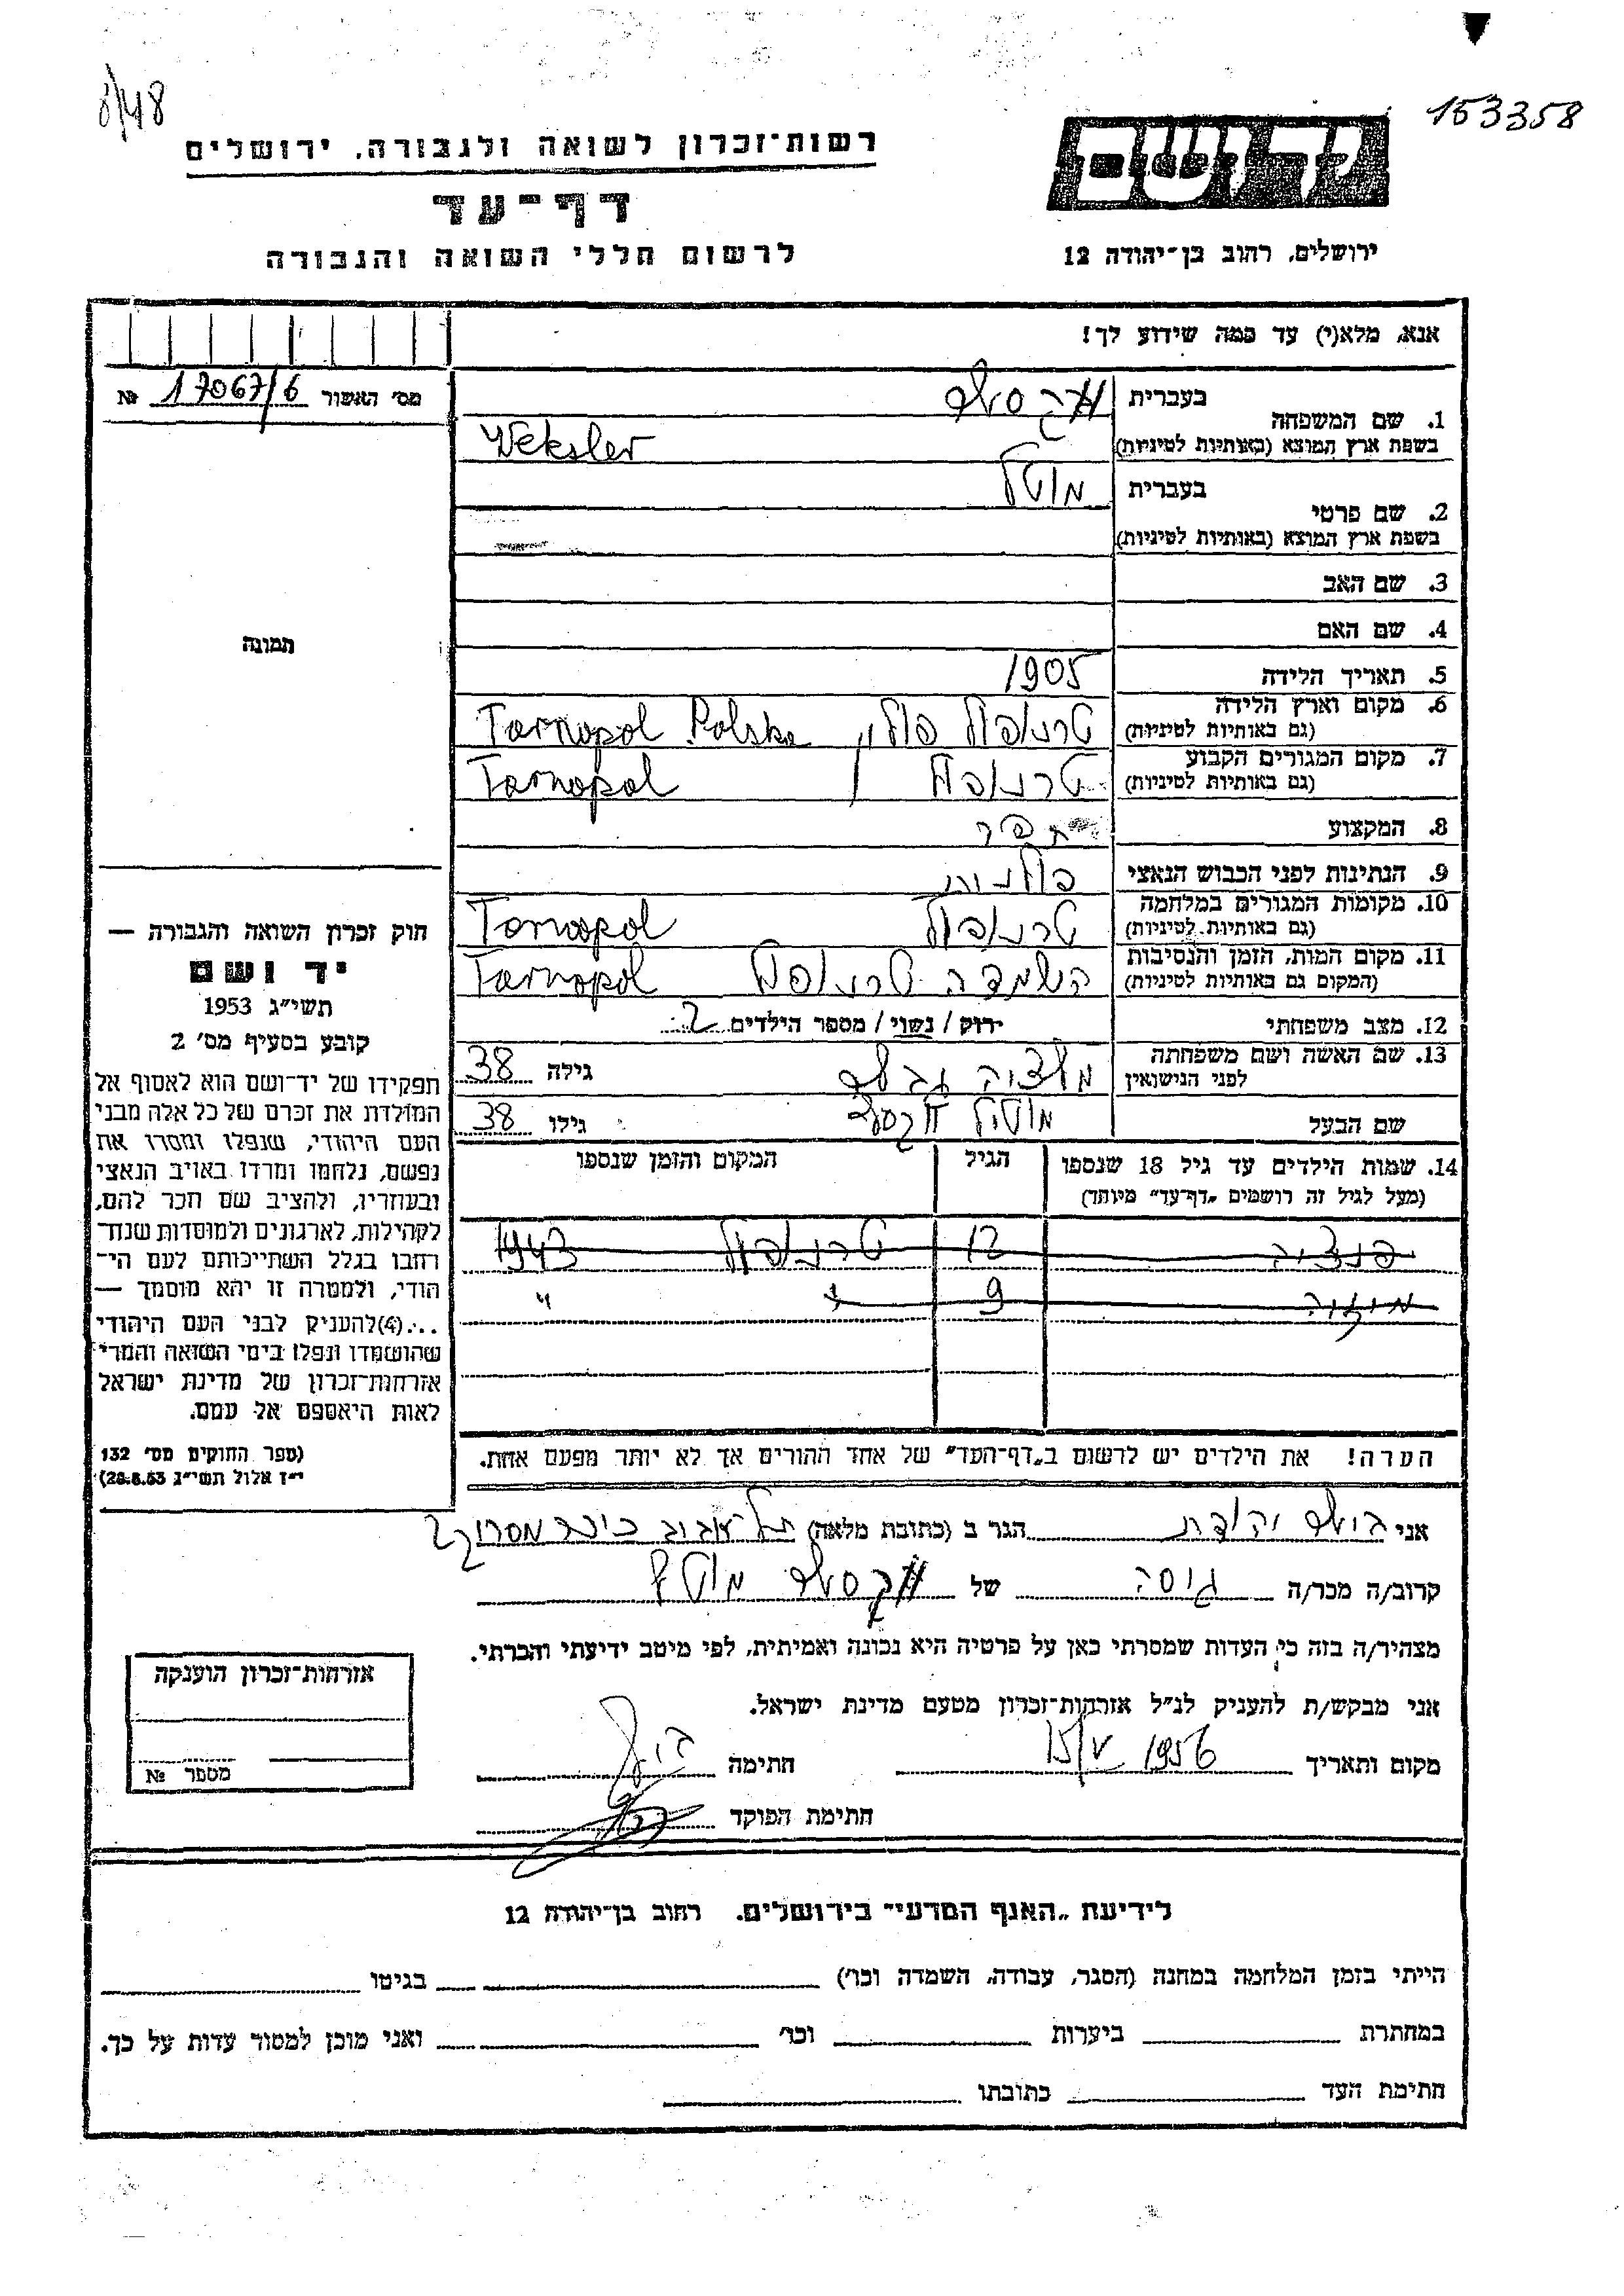 8/48
153358
רשות־זכרון לשואה ולגבורה, ירושלים
יד ושם
דף־עד
לרשום חללי השואה והגבורה
ירושלים, רחוב בן־יהודה 12
אנא, מלא(י) עד כמה שידוע לך!
מס׳ האשור 17067/6 №
1. שם המשפחה
בעברית וקסלר
בשפת ארץ המוצא (באותיות לטיניות) Weksler
2. שם פרטי
בעברית מוטל
בשפת ארץ המוצא (באותיות לטיניות)
3. שם האב
4. שם האם
תמונה
5. תאריך הלידה 1905
6. מקום וארץ הלידה טרנופול פולין Tarnopol Polska
(גם באותיות לטיניות)
7. מקום המגורים הקבוע טרנופול Tarnopol
(גם באותיות לטיניות)
8. המקצוע תפר
9. הנתינות לפני הכבוש הנאצי פולנית
10. מקומות המגורים במלחמה טרנופול Tarnopol
(גם באותיות לטיניות)
11. מקום המות, הזמן והנסיבות השמדה טרנופול Tarnopol
(המקום גם באותיות לטיניות)
12. מצב משפחתי רוק / נשוי / מספר הילדים 2
13. שם האשה ושם משפחתה
לפני הנישואין
גילה 38
שם הבעל מוטל וקסלר גילו 38
14. שמות הילדים עד גיל 18 שנספו הגיל המקום והזמן שנספו
(מעל לגיל זה רושמים „דף־עד״ מיוחד)
12 טרנופול 1943
9 " "
הערה! את הילדים יש לרשום ב„דף־העד״ של אחד ההורים אך לא יותר מפעם אחת.
חוק זכרון השואה והגבורה —
יד ושם
תשי״ג 1953
קובע בסעיף מס׳ 2
תפקידו של יד־ושם הוא לאסוף אל
המולדת את זכרם של כל אלה מבני
העם היהודי, שנפלו ומסרו את
נפשם, נלחמו ומרדו באויב הנאצי
ובעוזריו, ולהציב שם וזכר להם,
לקהילות, לארגונים ולמוסדות שנח־
רבו בגלל השתייכותם לעם הי־
הודי, ולמטרה זו יהא מוסמך —
...(4) להעניק לבני העם היהודי
שהושמדו ונפלו בימי השואה והמרי
אזרחות־זכרון של מדינת ישראל
לאות היאספם אל עמם.
(ספר החוקים מס׳ 132
י״ז אלול תשי״ג 28.8.53)
אני יהודית הגר ב (כתובת מלאה) תל־אביב
קרוב/ה מכר/ה גיסה של וקסלר מוטל
מצהיר/ה בזה כי העדות שמסרתי כאן על פרטיה היא נכונה ואמיתית, לפי מיטב ידיעתי והכרתי.
אני מבקש/ת להעניק לנ״ל אזרחות־זכרון מטעם מדינת ישראל.
מקום ותאריך 15/V 1956 חתימה
חתימת הפוקד
אזרחות־זכרון הוענקה
מספר №
לידיעת „האגף המדעי״ בירושלים. רחוב בן־יהודה 12
הייתי בזמן המלחמה במחנה (הסגר, עבודה, השמדה וכו׳) בגיטו
במחתרת ביערות וכו׳ ואני מוכן למסור עדות על כך.
חתימת העד כתובתו